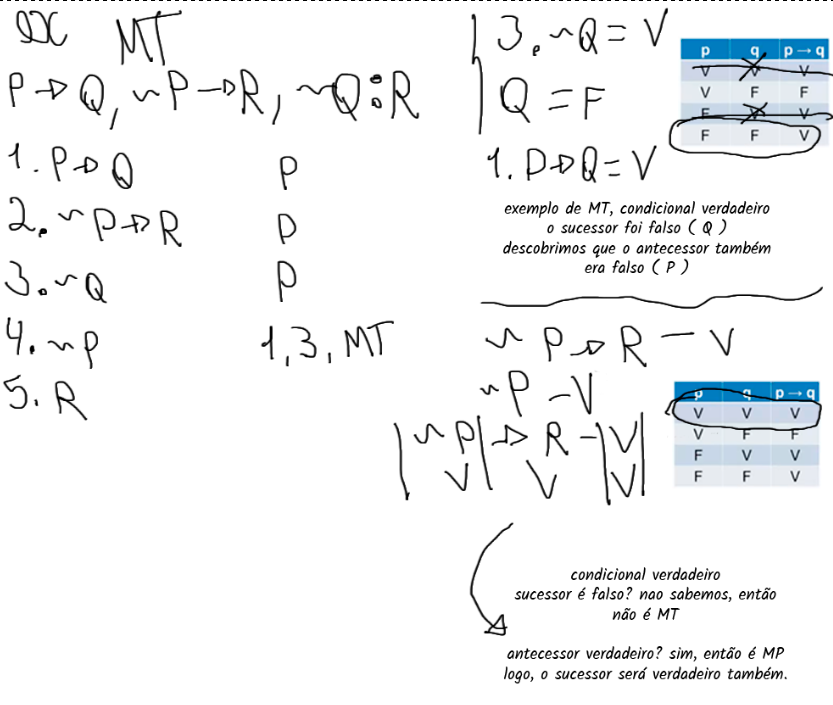 MT
P → Q, ~P → R, ~Q : R
1. P → Q P
2. ~P → R P
3. ~Q P
4. ~P 1,3, MT
5. R
3. ~Q = V
Q = F
1. P → Q = V
p q p → q
V V V
V F F
F V V
F F V
exemplo de MT, condicional verdadeiro
o sucessor foi falso ( Q )
descobrimos que o antecessor também
era falso ( P )
~P → R - V
~P - V
|~P| → R - |V|
V V V
p q p → q
V V V
V F F
F V V
F F V
condicional verdadeiro
sucessor é falso? nao sabemos, então
não é MT
antecessor verdadeiro? sim, então é MP
logo, o sucessor será verdadeiro também.